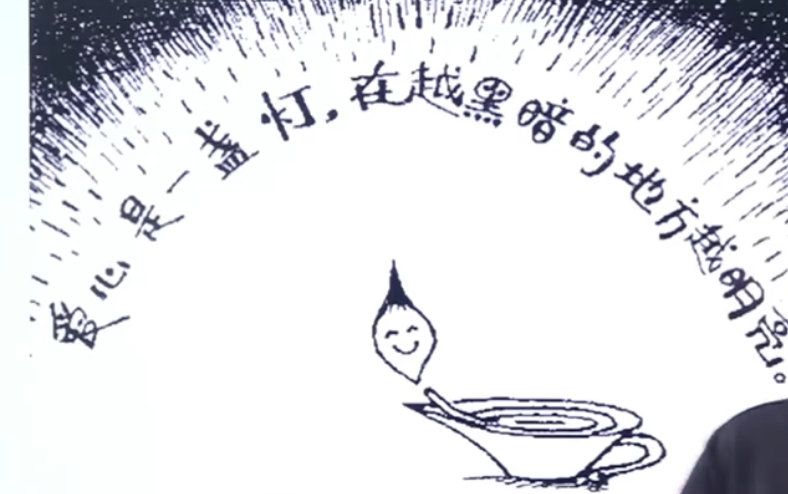 爱心是一盏灯,在越黑暗的地方越明亮。